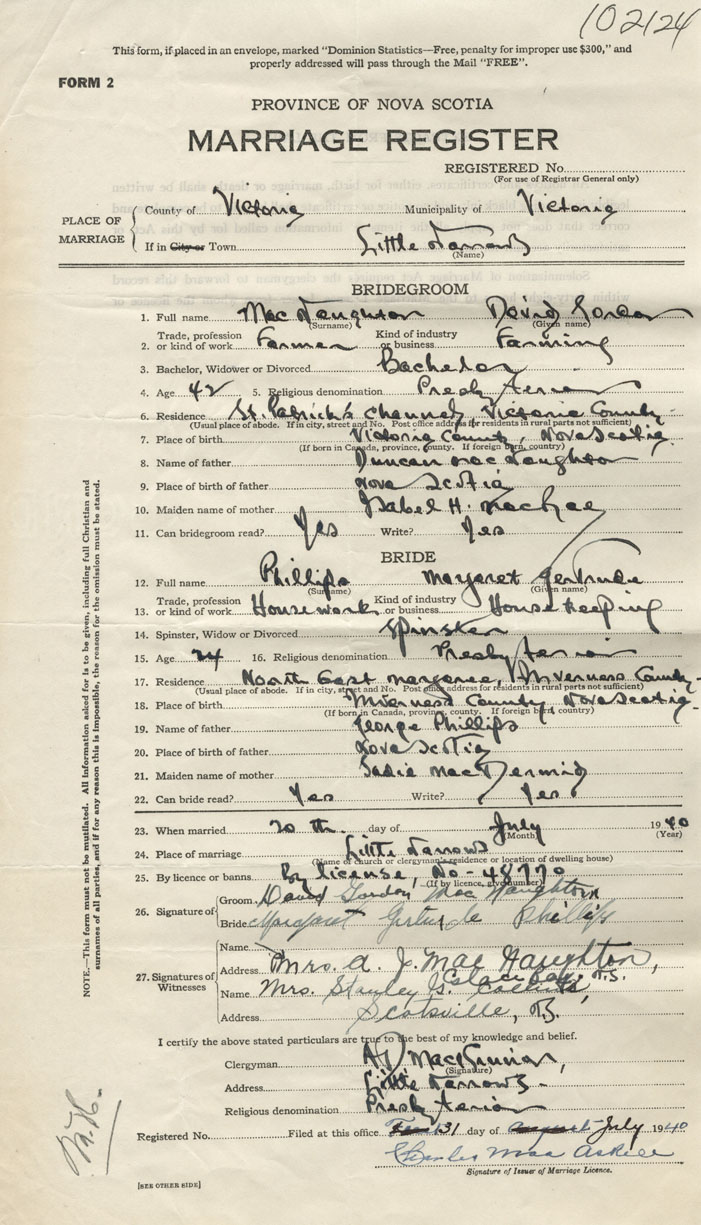 102124
This form, if placed in an envelope, marked "Dominion Statistics—Free, penalty for improper use $300," and
properly addressed will pass through the Mail "FREE".
FORM 2
PROVINCE OF NOVA SCOTIA
MARRIAGE REGISTER
REGISTERED No.
(For use of Registrar General only)
PLACE OF MARRIAGE
County of Victoria Municipality of Victoria
If in City or Town Little Narrows
(Name)
BRIDEGROOM
1. Full name MacNaughton David Gordon
(Surname) (Given name)
2. Trade, profession or kind of work Farmer Kind of industry or business Farming
3. Bachelor, Widower or Divorced Bachelor
4. Age 42 5. Religious denomination Presbyterian
6. Residence St. Patrick's Channel, Victoria County
(Usual place of abode. If in city, street and No. Post office address for residents in rural parts not sufficient)
7. Place of birth Victoria County, Nova Scotia
(If born in Canada, province, county. If foreign born, country)
8. Name of father Duncan MacNaughton
9. Place of birth of father Nova Scotia
10. Maiden name of mother Isabel H. MacRae
11. Can bridegroom read? Yes Write? Yes
BRIDE
12. Full name Phillips Margaret Gertrude
(Surname) (Given name)
13. Trade, profession or kind of work Housework Kind of industry or business Housekeeping
14. Spinster, Widow or Divorced Spinster
15. Age 24 16. Religious denomination Presbyterian
17. Residence North East Margaree, Inverness County
(Usual place of abode. If in city, street and No. Post office address for residents in rural parts not sufficient)
18. Place of birth Inverness County, Nova Scotia
(If born in Canada, province, county. If foreign born, country)
19. Name of father George Phillips
20. Place of birth of father Nova Scotia
21. Maiden name of mother Sadie MacDermid
22. Can bride read? Yes Write? Yes
23. When married 20th day of July 1940
(Month) (Year)
24. Place of marriage Little Narrows
(Name of church or clergyman's residence or location of dwelling house)
25. By licence or banns By license, No-48770
(If by licence, give number)
26. Signature of
Groom David Gordon MacNaughton
Bride Margaret Gertrude Phillips
27. Signatures of Witnesses
Name Mrs. A. J. MacNaughton,
Address Glace Bay, N.S.
Name Mrs. Stanley G.
Address Scotsville, N.S.
I certify the above stated particulars are true to the best of my knowledge and belief.
Clergyman A.D. MacKinnon,
(Signature)
Address Little Narrows
Religious denomination Presbyterian
Registered No. Filed at this office 31 day of July 1940
Charles MacAskill
Signature of Issuer of Marriage Licence.
[SEE OTHER SIDE]
NOTE.—This form must not be mutilated. All Information asked for is to be given, including full Christian and
surnames of all parties, and if for any reason this is impossible, the reason for the omission must be stated.